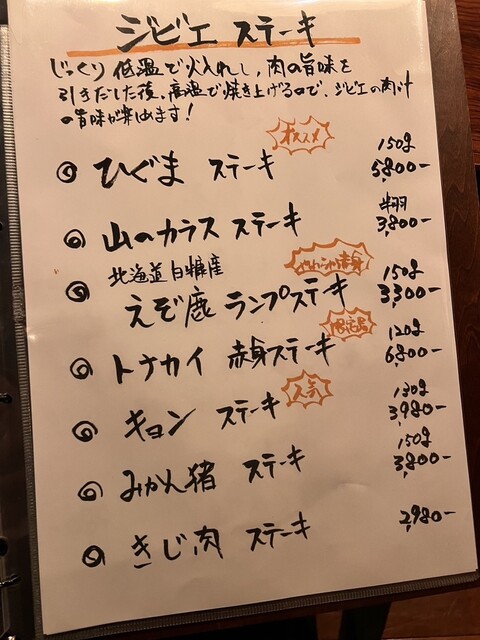 ジビエ ステーキ
じっくり低温で火入れし、肉の旨味を
引きだした後、高温で焼き上げるので、ジビエの肉汁
の旨味が楽しめます!
オススメ
ひぐま ステーキ 150g 5800-
山のカラス ステーキ 半羽 3,800-
北海道白糠産 やわらか赤身
えぞ鹿 ランプステーキ 150g 3,300-
限定品
トナカイ 赤身ステーキ 120g 6,800-
人気
キョン ステーキ 130g 3,980-
みかん猪 ステーキ 150g 3,800-
きじ肉 ステーキ 2,980-